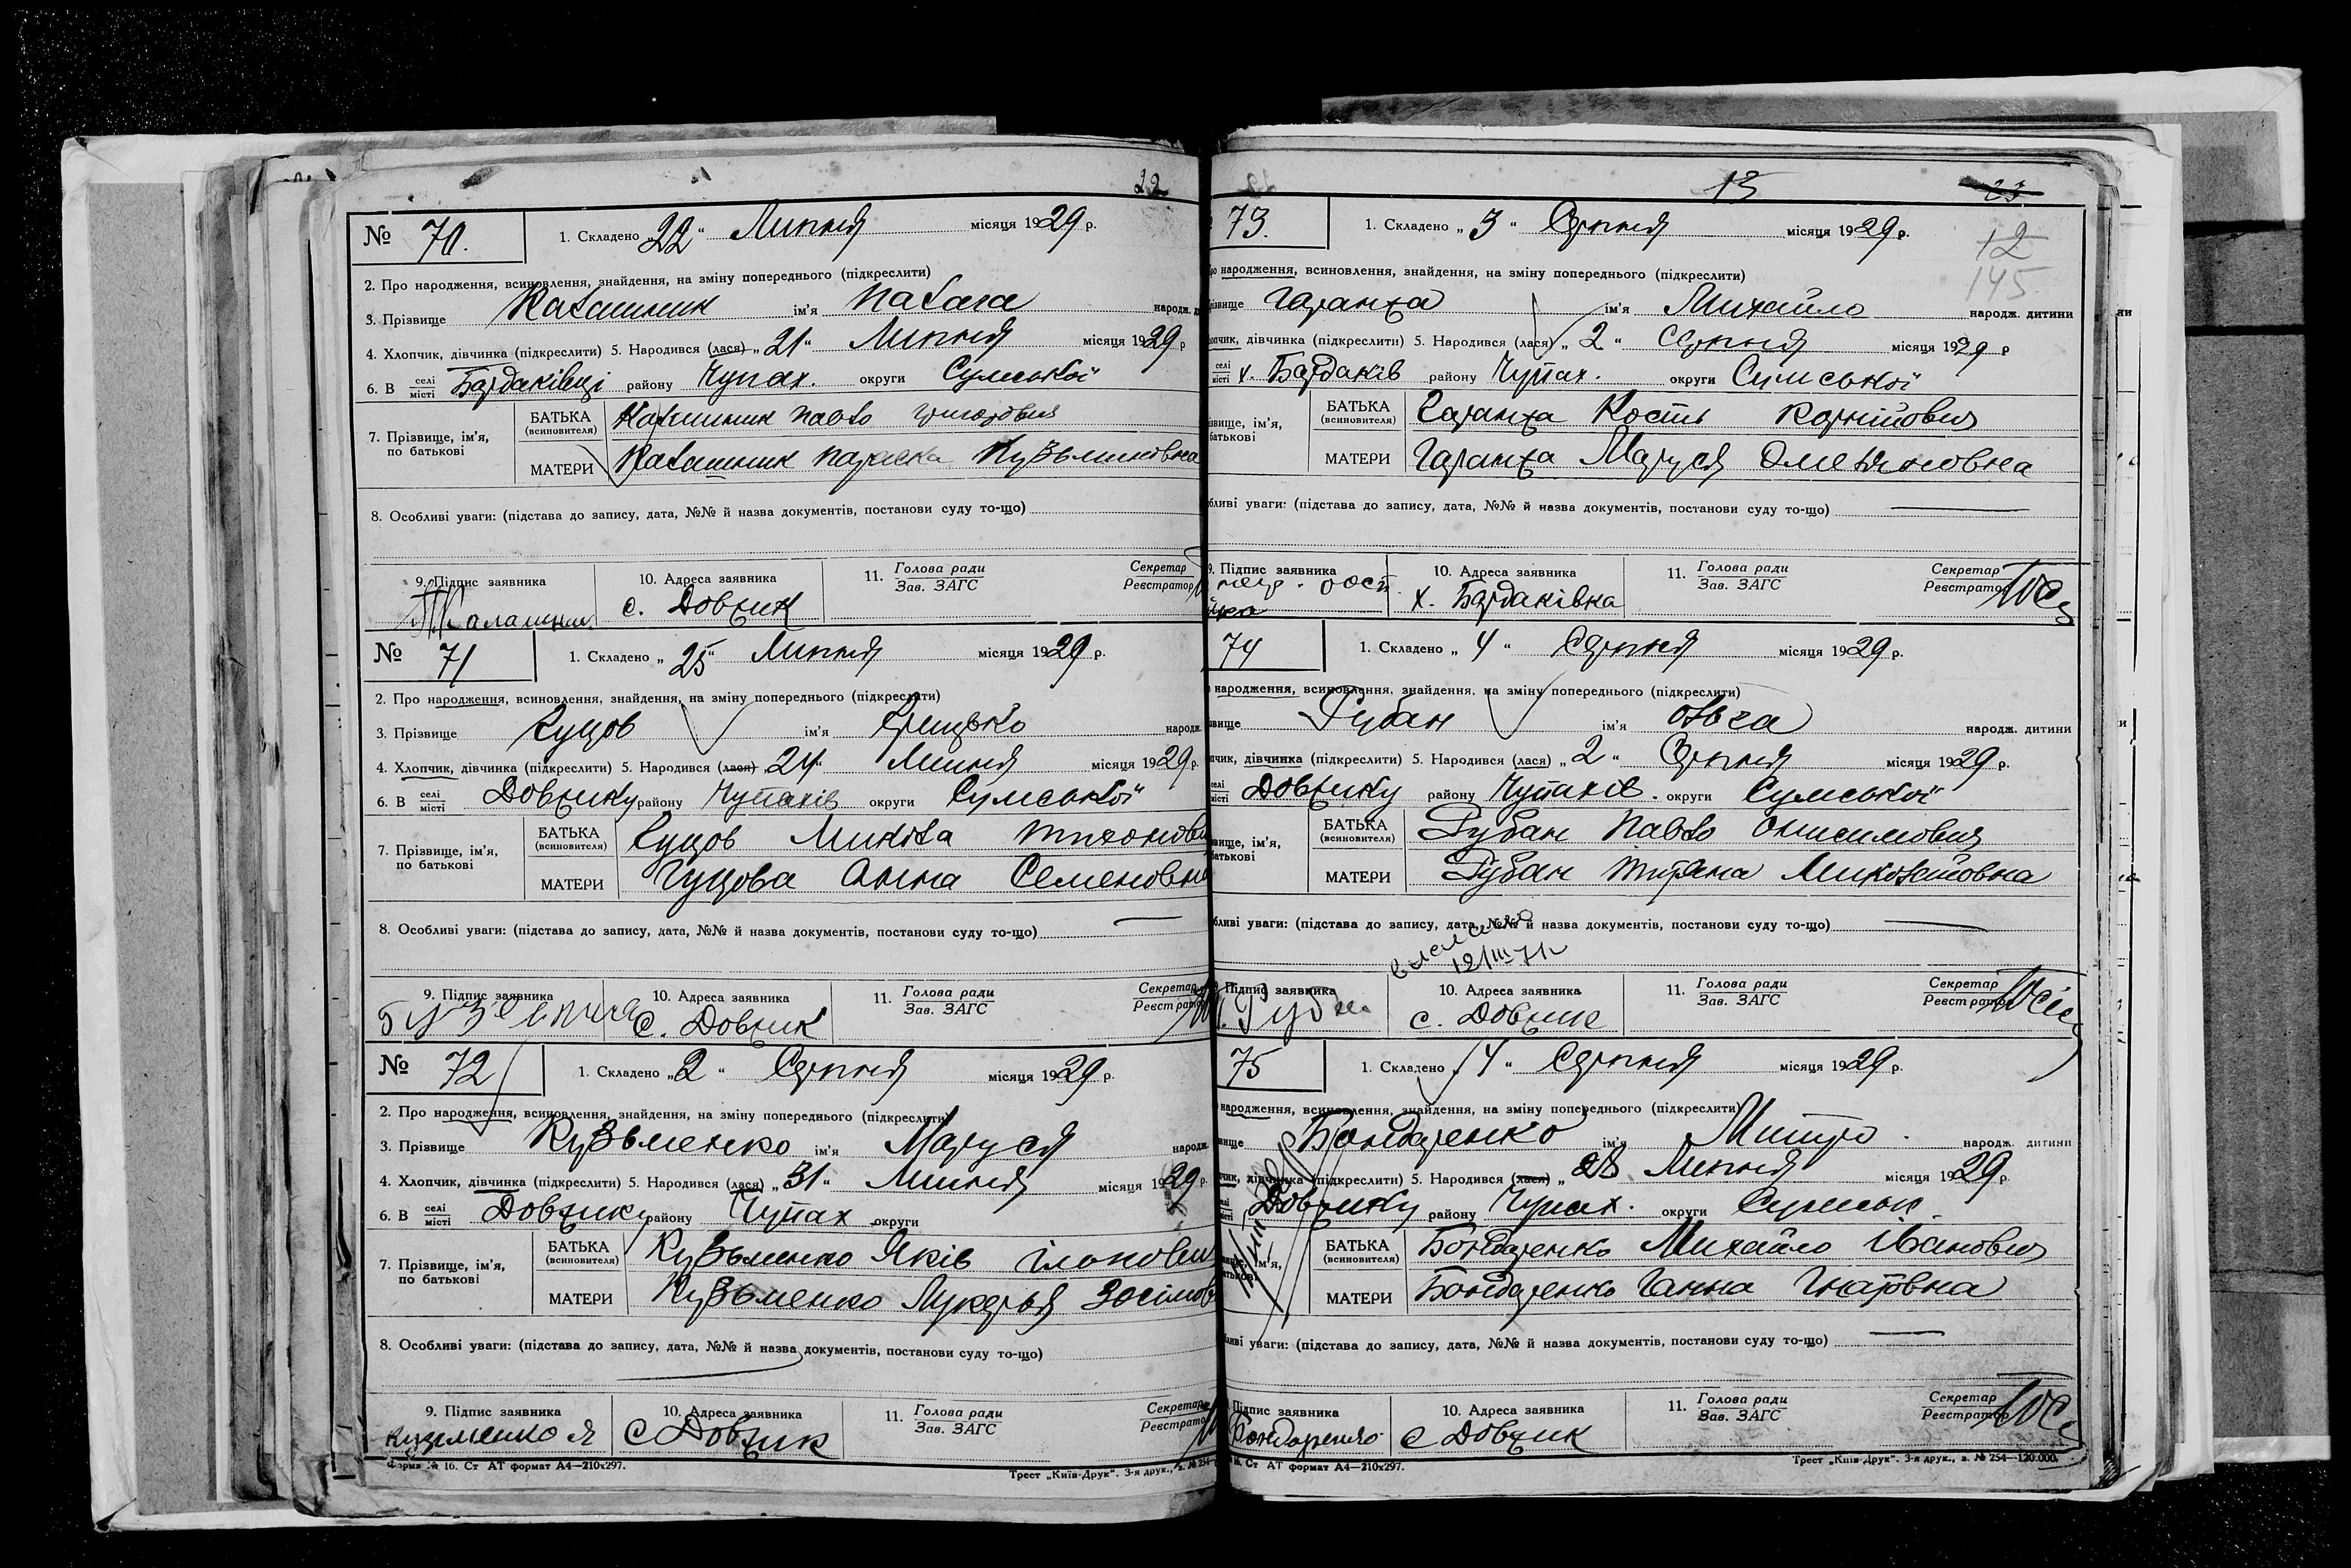 22
№ 70. 1. Складено „22“ Липня місяця 1929 р.
2. Про народження, всиновлення, знайдення, на зміну попереднього (підкреслити)
3. Прізвище Калашник ім'я Натала народж.
4. Хлопчик, дівчинка (підкреслити) 5. Народився (лася) „21“ Липня місяця 1929 р
6. В селі місті Бардаківці району Чупах. округи Сумської
7. Прізвище, ім'я, по батькові
БАТЬКА (всиновителя) Калашник Павло Григорович
МАТЕРИ Калашник Параска Кузьминовна
8. Особливі уваги: (підстава до запису, дата, №№ й назва документів, постанови суду то-що)
9. Підпис заявника 10. Адреса заявника 11. Голова ради Зав. ЗАГС Секретар Реєстратор
П. Калашник с. Довжик
№ 71 1. Складено „25“ Липня місяця 1929 р.
2. Про народження, всиновлення, знайдення, на зміну попереднього (підкреслити)
3. Прізвище Куцов ім'я Грицько народж.
4. Хлопчик, дівчинка (підкреслити) 5. Народився (лася) „24“ Липня місяця 1929 р.
6. В селі місті Довжику району Чупахів округи Сумської
7. Прізвище, ім'я, по батькові
БАТЬКА (всиновителя) Куцов Микита Тихонови
МАТЕРИ Куцова Анна Семеновна
8. Особливі уваги: (підстава до запису, дата, №№ й назва документів, постанови суду то-що)
9. Підпис заявника 10. Адреса заявника 11. Голова ради Зав. ЗАГС Секретар Реєстратор
с. Довжик
№ 72 1. Складено „2“ Серпня місяця 1929 р.
2. Про народження, всиновлення, знайдення, на зміну попереднього (підкреслити)
3. Прізвище Кузьменко ім'я Маруся народж.
4. Хлопчик, дівчинка (підкреслити) 5. Народився (лася) „31“ Липня місяця 1929 р.
6. В селі місті Довжику району Чупах округи
7. Прізвище, ім'я, по батькові
БАТЬКА (всиновителя) Кузьменко Яків
МАТЕРИ Кузьменко Лукерья Зосімов
8. Особливі уваги: (підстава до запису, дата, №№ й назва документів, постанови суду то-що)
9. Підпис заявника 10. Адреса заявника 11. Голова ради Зав. ЗАГС Секретар Реєстратор
Кузменко Я с Довжик
Форма № 16. Ст АТ формат А4—210х297. Трест „Київ-Друк“. 3-я друк., з. № 254
13 23
12
145
73. 1. Складено „3“ Серпня місяця 1929 р.
народження, всиновлення, знайдення, на зміну попереднього (підкреслити)
Гаранжа ім'я Михайло народж. дитини
дівчинка (підкреслити) 5. Народився (лася) „2“ Серпня місяця 1929 р
селі місті х. Бардаків району Чупах. округи Сумської
БАТЬКА (всиновителя) Гаранжа Кость Корнійович
МАТЕРИ Гаранжа Маруся Омеляновна
уваги: (підстава до запису, дата, №№ й назва документів, постанови суду то-що)
9. Підпис заявника 10. Адреса заявника 11. Голова ради Зав. ЗАГС Секретар Реєстратор
х. Бардаківка
74 1. Складено „4“ Серпня місяця 1929 р.
народження, всиновлення, знайдення, на зміну попереднього (підкреслити)
Рубан ім'я Ольга народж. дитини
дівчинка (підкреслити) 5. Народився (лася) „2“ Серпня місяця 1929 р.
Довжику району Чупахів. округи Сумської
БАТЬКА (всиновителя) Рубан Павло Онисимович
МАТЕРИ Рубан Миколайовна
уваги: (підстава до запису, дата, №№ й назва документів, постанови суду то-що)
Підпис заявника 10. Адреса заявника 11. Голова ради Зав. ЗАГС Секретар Реєстратор
Рубан с. Довжик
75 1. Складено „4“ Серпня місяця 1929 р.
народження, всиновлення, знайдення, на зміну попереднього (підкреслити)
Бондаренко ім'я Митро народж. дитини
дівчинка (підкреслити) 5. Народився (лася) „28 Липня місяця 1929 р.
Довжику району Чупах. округи Сумськ
БАТЬКА (всиновителя) Бондаренко Михайло Іванович
МАТЕРИ Бондаренко Ганна Гнатовна
уваги: (підстава до запису, дата, №№ й назва документів, постанови суду то-що)
Підпис заявника 10. Адреса заявника 11. Голова ради Зав. ЗАГС Секретар Реєстратор
Бондаренко с Довжик
16. Ст АТ формат А4—210х297. Трест „Київ-Друк“. 3-я друк., з. № 254—120.000.